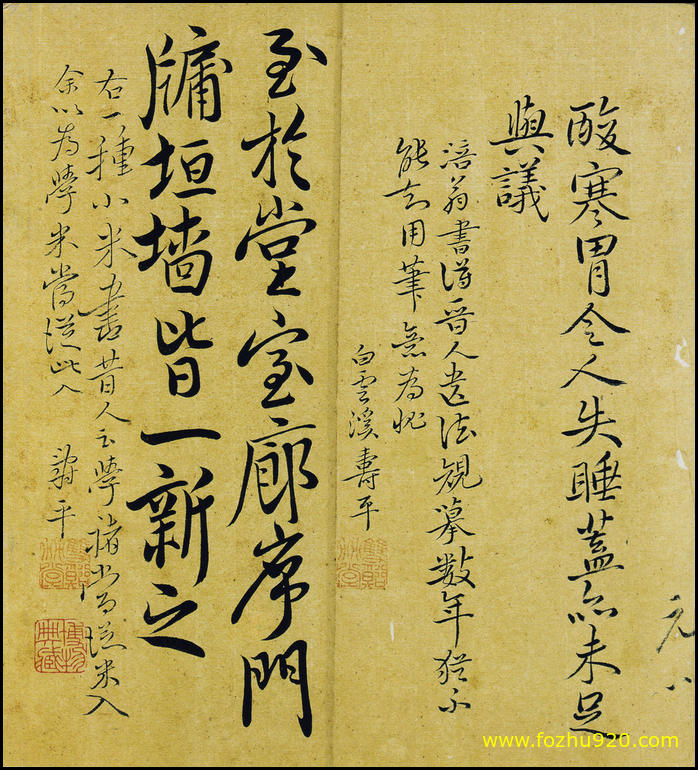 酸寒胃令人失睡蓋亦未足
與議
涪翁書得晉人遺法規摹數年猶不
能用筆為愧
白雲溪壽平
至於堂室廊序門
牖垣墻皆一新之
右一種小米書昔人云學褚當從米入
余以為學米當從此入
壽平
www.fozhu920.com